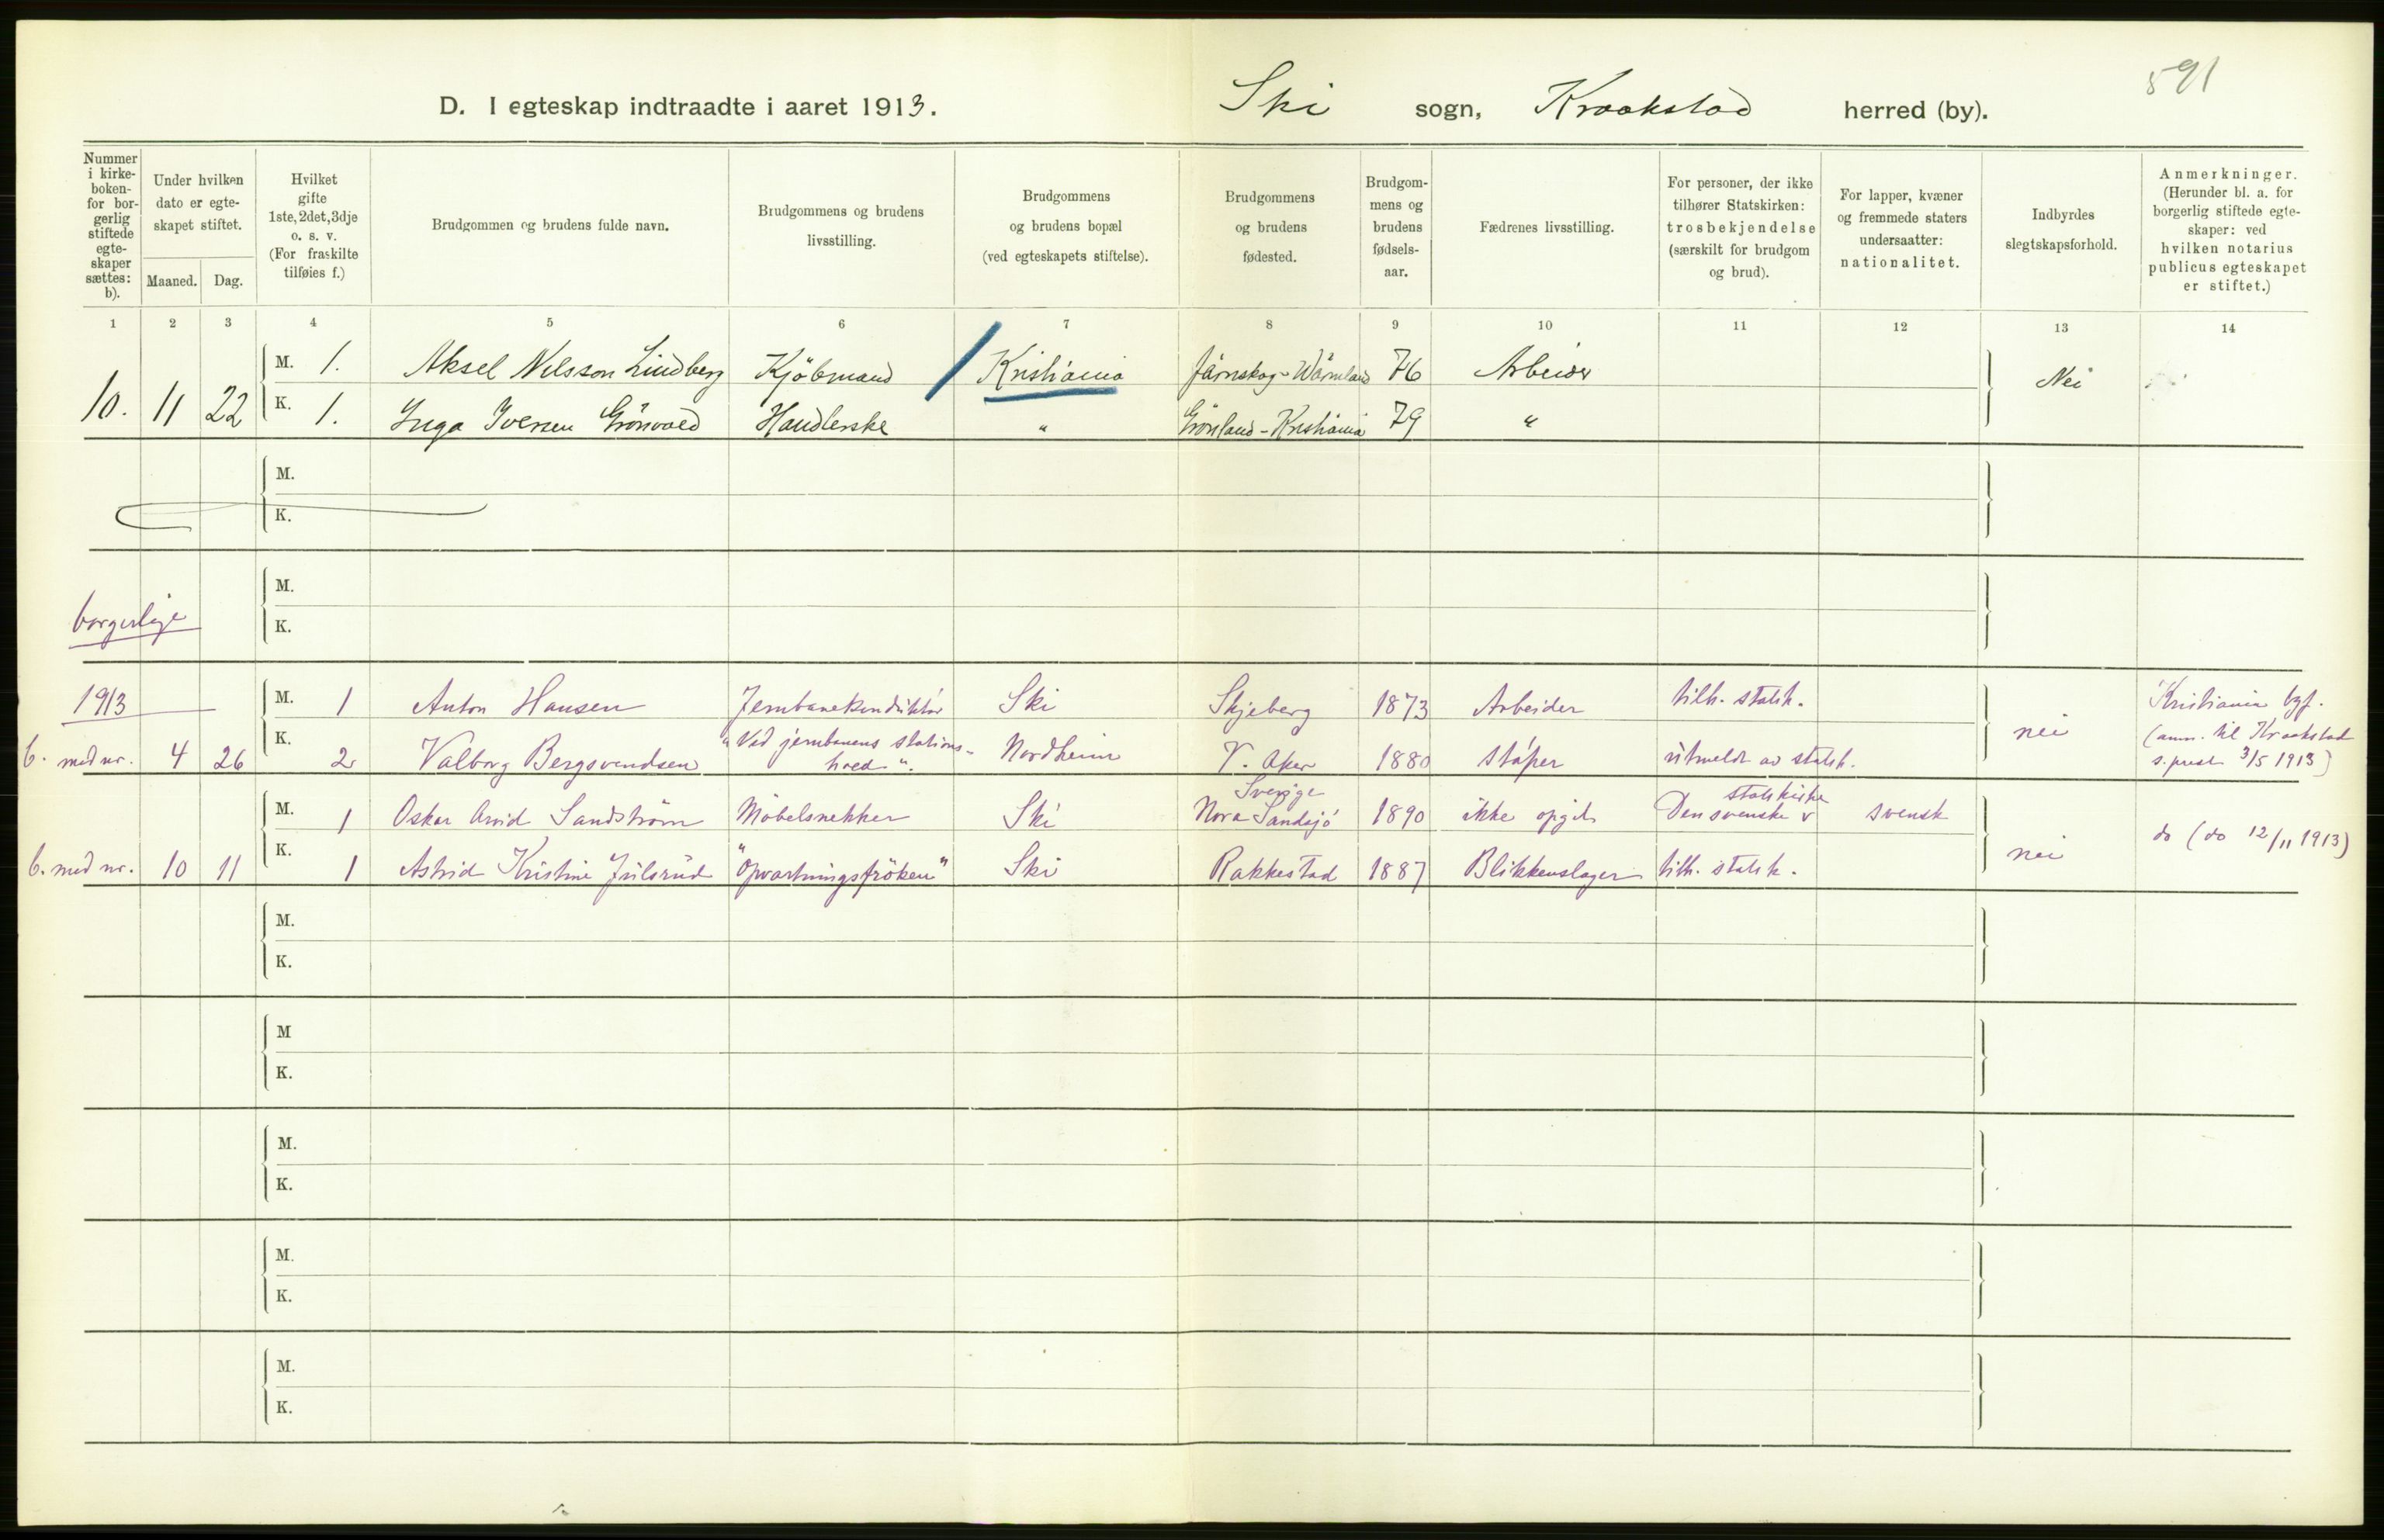 591
D. I egteskap indtraadte i aaret 1913. Ski sogn, Kraakstad herred (by).
Nummer i kirke-boken- for bor-gerlig stiftede egte-skaper sættes: b).
Under hvilken dato er egte-skapet stiftet.
Maaned. Dag.
Hvilket gifte 1ste, 2det, 3dje o. s. v. (For fraskilte tilføies f.)
Brudgommen og brudens fulde navn.
Brudgommens og brudens livsstilling.
Brudgommens og brudens bopæl (ved egteskapets stiftelse).
Brudgommens og brudens fødested.
Brudgom-mens og brudens fødsels-aar.
Fædrenes livsstilling.
For personer, der ikke tilhører Statskirken: trosbekjendelse (særskilt for brudgom og brud).
For lapper, kvæner og fremmede staters undersaatter: nationalitet.
Indbyrdes slegtskapsforhold.
Anmerkninger. (Herunder bl. a. for borgerlig stiftede egte-skaper: ved hvilken notarius publicus egteskapet er stiftet.)
1 2 3 4 5 6 7 8 9 10 11 12 13 14
M. 1. Aksel Nilsson Lindberg Kjöbmand Kristiania Järnskog-Wärmland 76 Arbeider Nei
10. 11 22 K. 1. Inga Iversen Grönvold Handlerske " Grönland-Kristiania 79 "
M.
K.
M.
borgerlige K.
1913 M. 1 Anton Hansen Jernbanekonduktör Ski Skjeberg 1873 Arbeider tilh. statsk. nei Kristiania byf.
b. med nr. 4 26 K. 2 Valborg Bergsvendsen "Ved jernbanens stations-hoved". Nordheim V. Aker 1880 støper utmeldt av statsk. (anm. til Kraakstad s. prest 3/5 1913)
M. 1 Oskar Arvid Sandström Möbelsnekker Ski Sverige Nora Sandsjö 1890 ikke opgit Den svenske statskirke svensk nei do (do 12/11 1913)
b. med nr. 10 11 K. 1 Astrid Kristine Julsrud "Opvartningsfröken" Ski Rakkestad 1887 Blikkenslager tilh. statsk.
M.
K.
M
K.
M.
K.
M.
K.
M.
K.